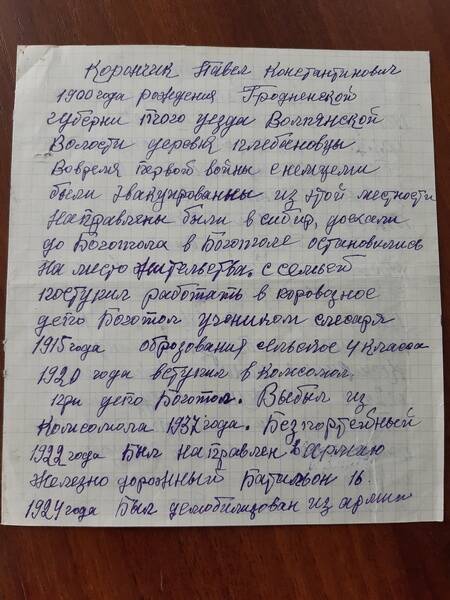 Корончик Павел Константинович
1900 года рождения Гродненской
губерни того уезда Волпянской
Волости деревня Плебановцы
Вовремя первого войны с немцеми
были Эвакуированны из этой местности
Направлены были в сибир, доехали
до Боготола в Боготоле остановились
на место Жительства. с семьей
поступил работать в
депо Боготол учеником слесаря
1915 года образования сельское 4 класса
1920 года вступил в Комсомол
при депо Боготол. Выбыл из
Комсомола 1937 года. Безпортейный
1922 года Был направлен в Армию
Железно дорожный Батильон 16.
1924 года Был демобилизован из армии